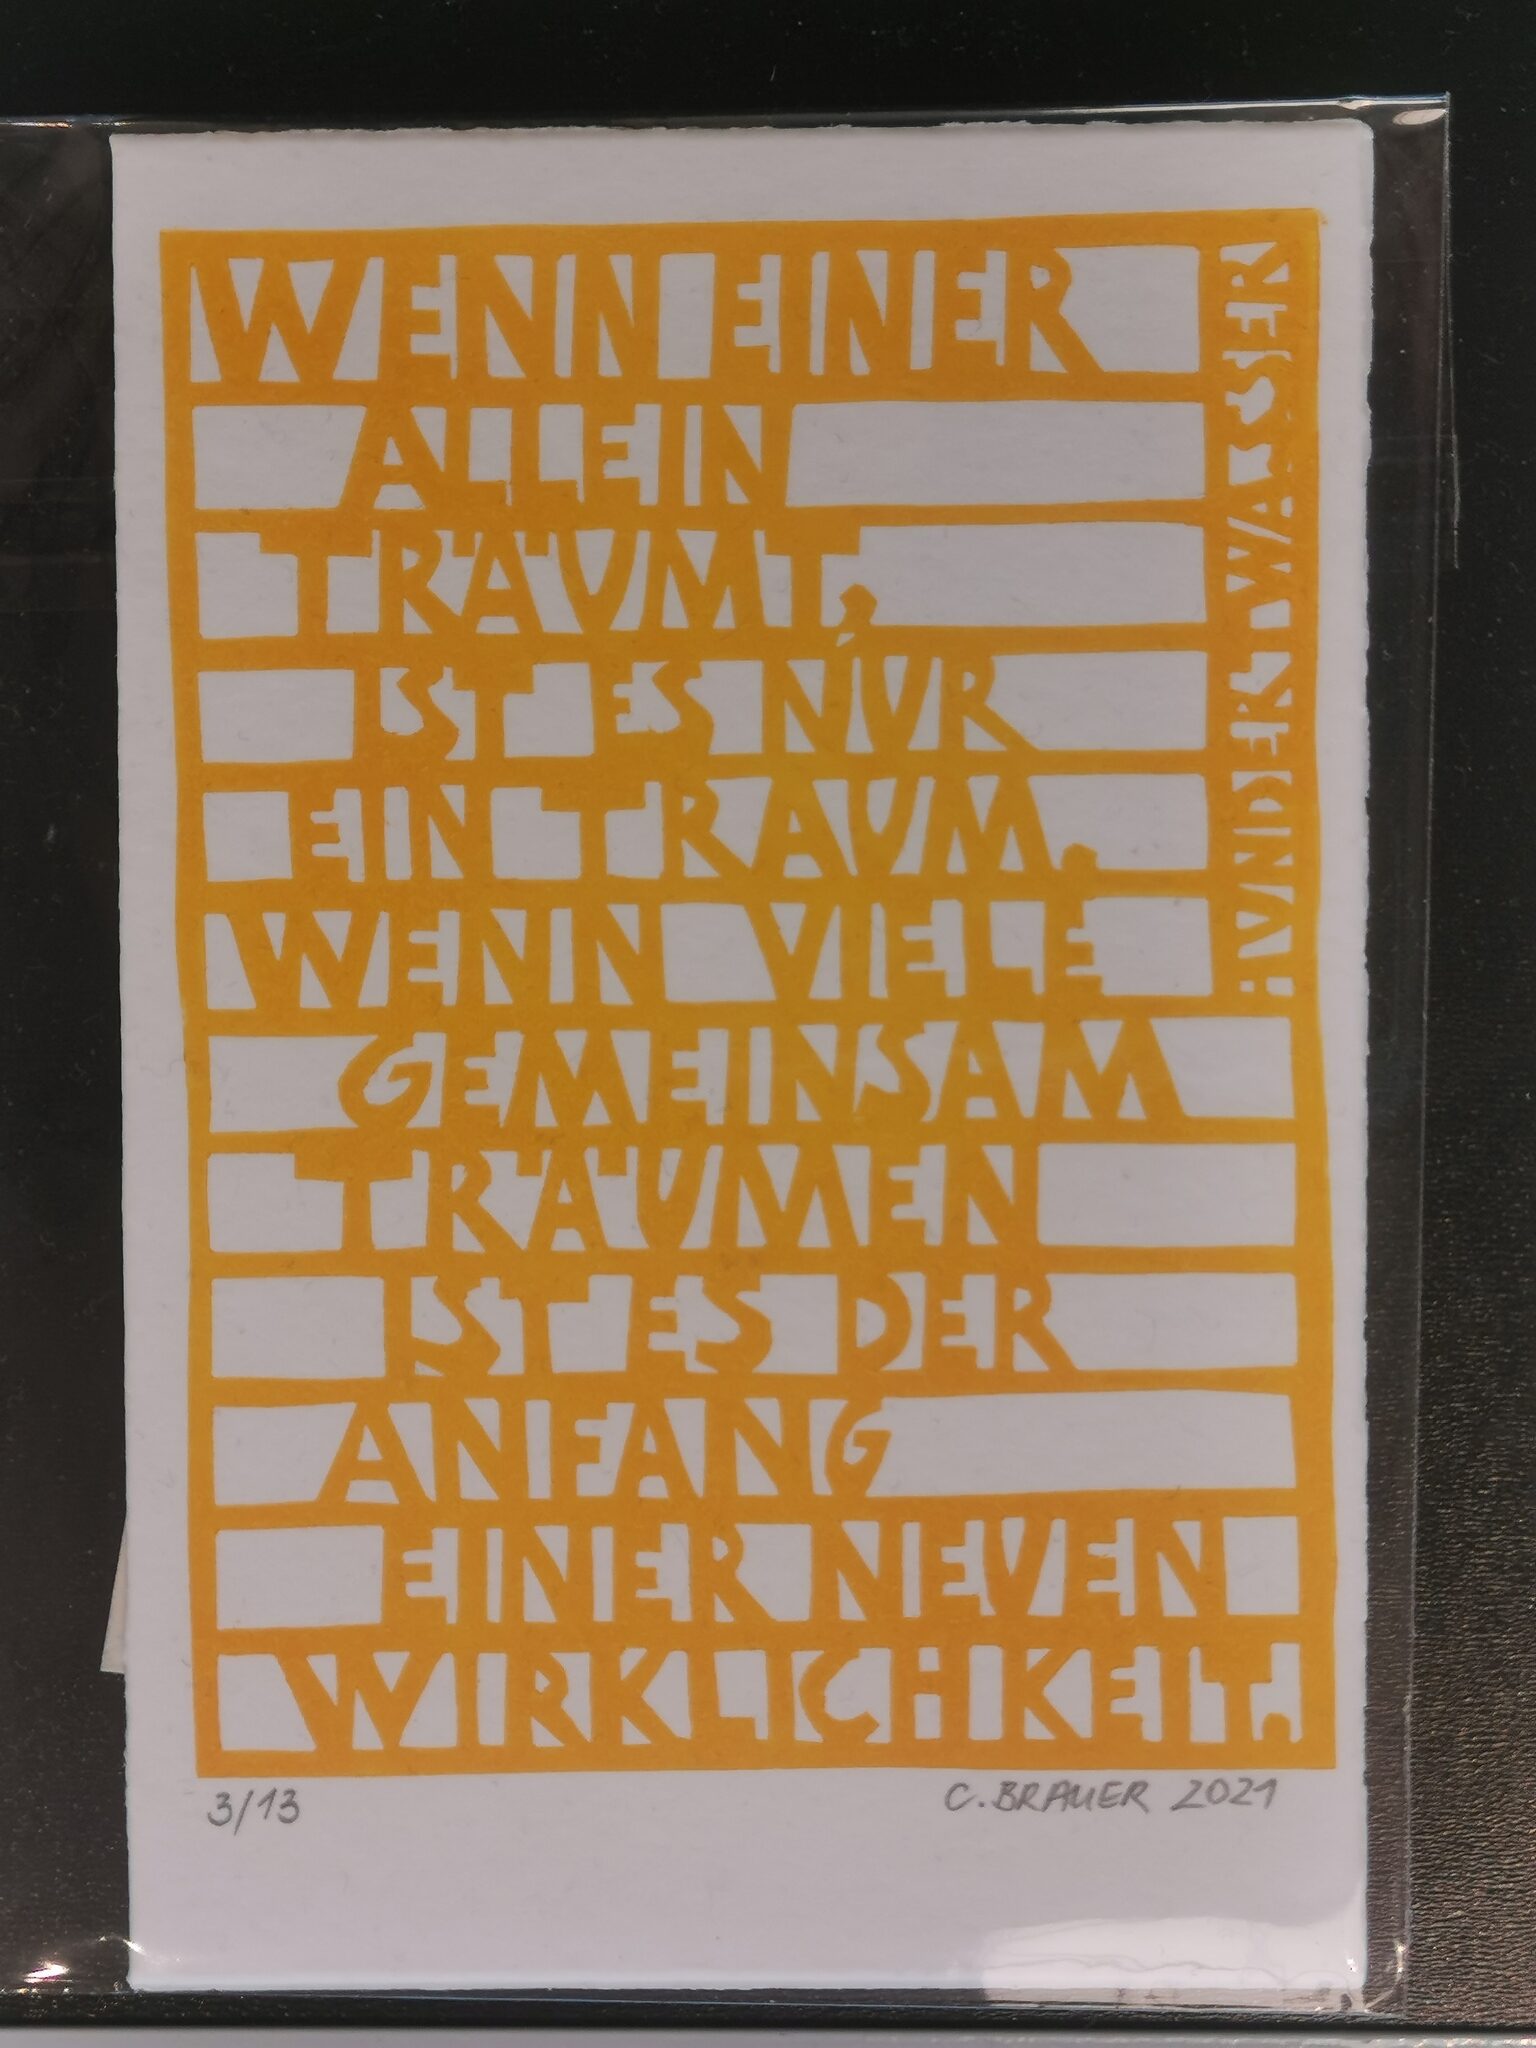 WENN EINER
ALLEIN
TRÄUMT,
IST ES NUR
EIN TRAUM.
WENN VIELE
GEMEINSAM
TRÄUMEN
IST ES DER
ANFANG
EINER NEUEN
WIRKLICHKEIT.
HUNDERTWASSER
3/13
C. BRAUER 2021